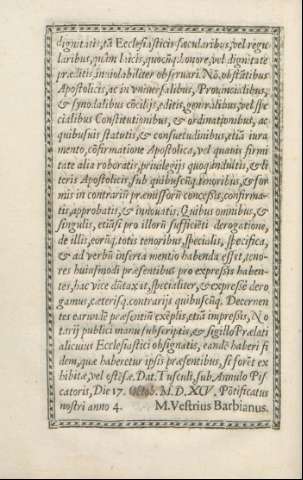 dignitatis, tā Ecclesiasticis sæcularibus, vel regu
laribus, quàm laicis, quocūq; honore, vel dignitate
præditis, inviolabiliter observari. Nō, obstātibus
Apostolicis, ac in vniversalibus, Provincialibus,
& synodalibus cōcilijs, editis, generalibus, vel spe
cialibus Constitutionibus, & ordinationibus, ac
quibusuis statutis, & consuetudinibus, etiā iura
mento, cōfirmatione Apostolica, vel quauis firmi
tate alia roboratis, privilegijs quoq; indultis, & li
teris Apostolicis, sub quibuscūq; tenoribus, & for
mis in contrariū præmissorū concessis, confirma-
tis, approbatis, & innovatis. Quibus omnibus, &
singulis, etiāsi pro illorū sufficiēti derogatione,
de illis, eorūq; totis tenoribus, specialis, specifica,
& ad verbū inserta mentio habenda esset, teno-
res huiusmodi præsentibus pro expressis haben-
tes, hac vice dūtaxat, specialiter, & expressè dero
gamus, cæterisq; contrarijs quibuscūq;. Decernen
tes earundē præsentiū exēplis, etiā impressis, No
tarij publici manu subscriptis, & sigillo Prælati
alicuius Ecclesiastici obsignatis, eandē haberi fi
dem, quæ haberetur ipsis præsentibus, si forēt ex
hibitæ, vel ostēsæ. Dat. Tusculi, sub Annulo Pis
catoris, Die 17. Octob. M. D. XCV. Pōtificatus
nostri anno 4. M. Vestrius Barbianus.